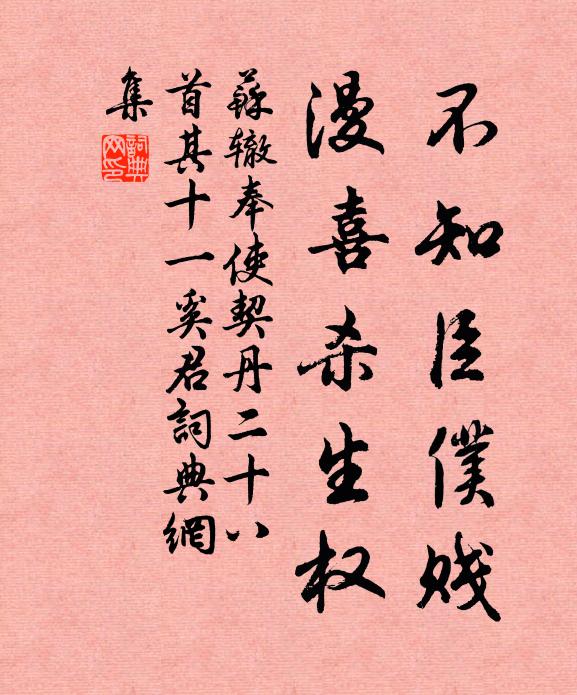 不知臣僕贱
漫喜杀生权
蘇辙奉使契丹二十八
首其十一奚君詞典網
集
詞典网印